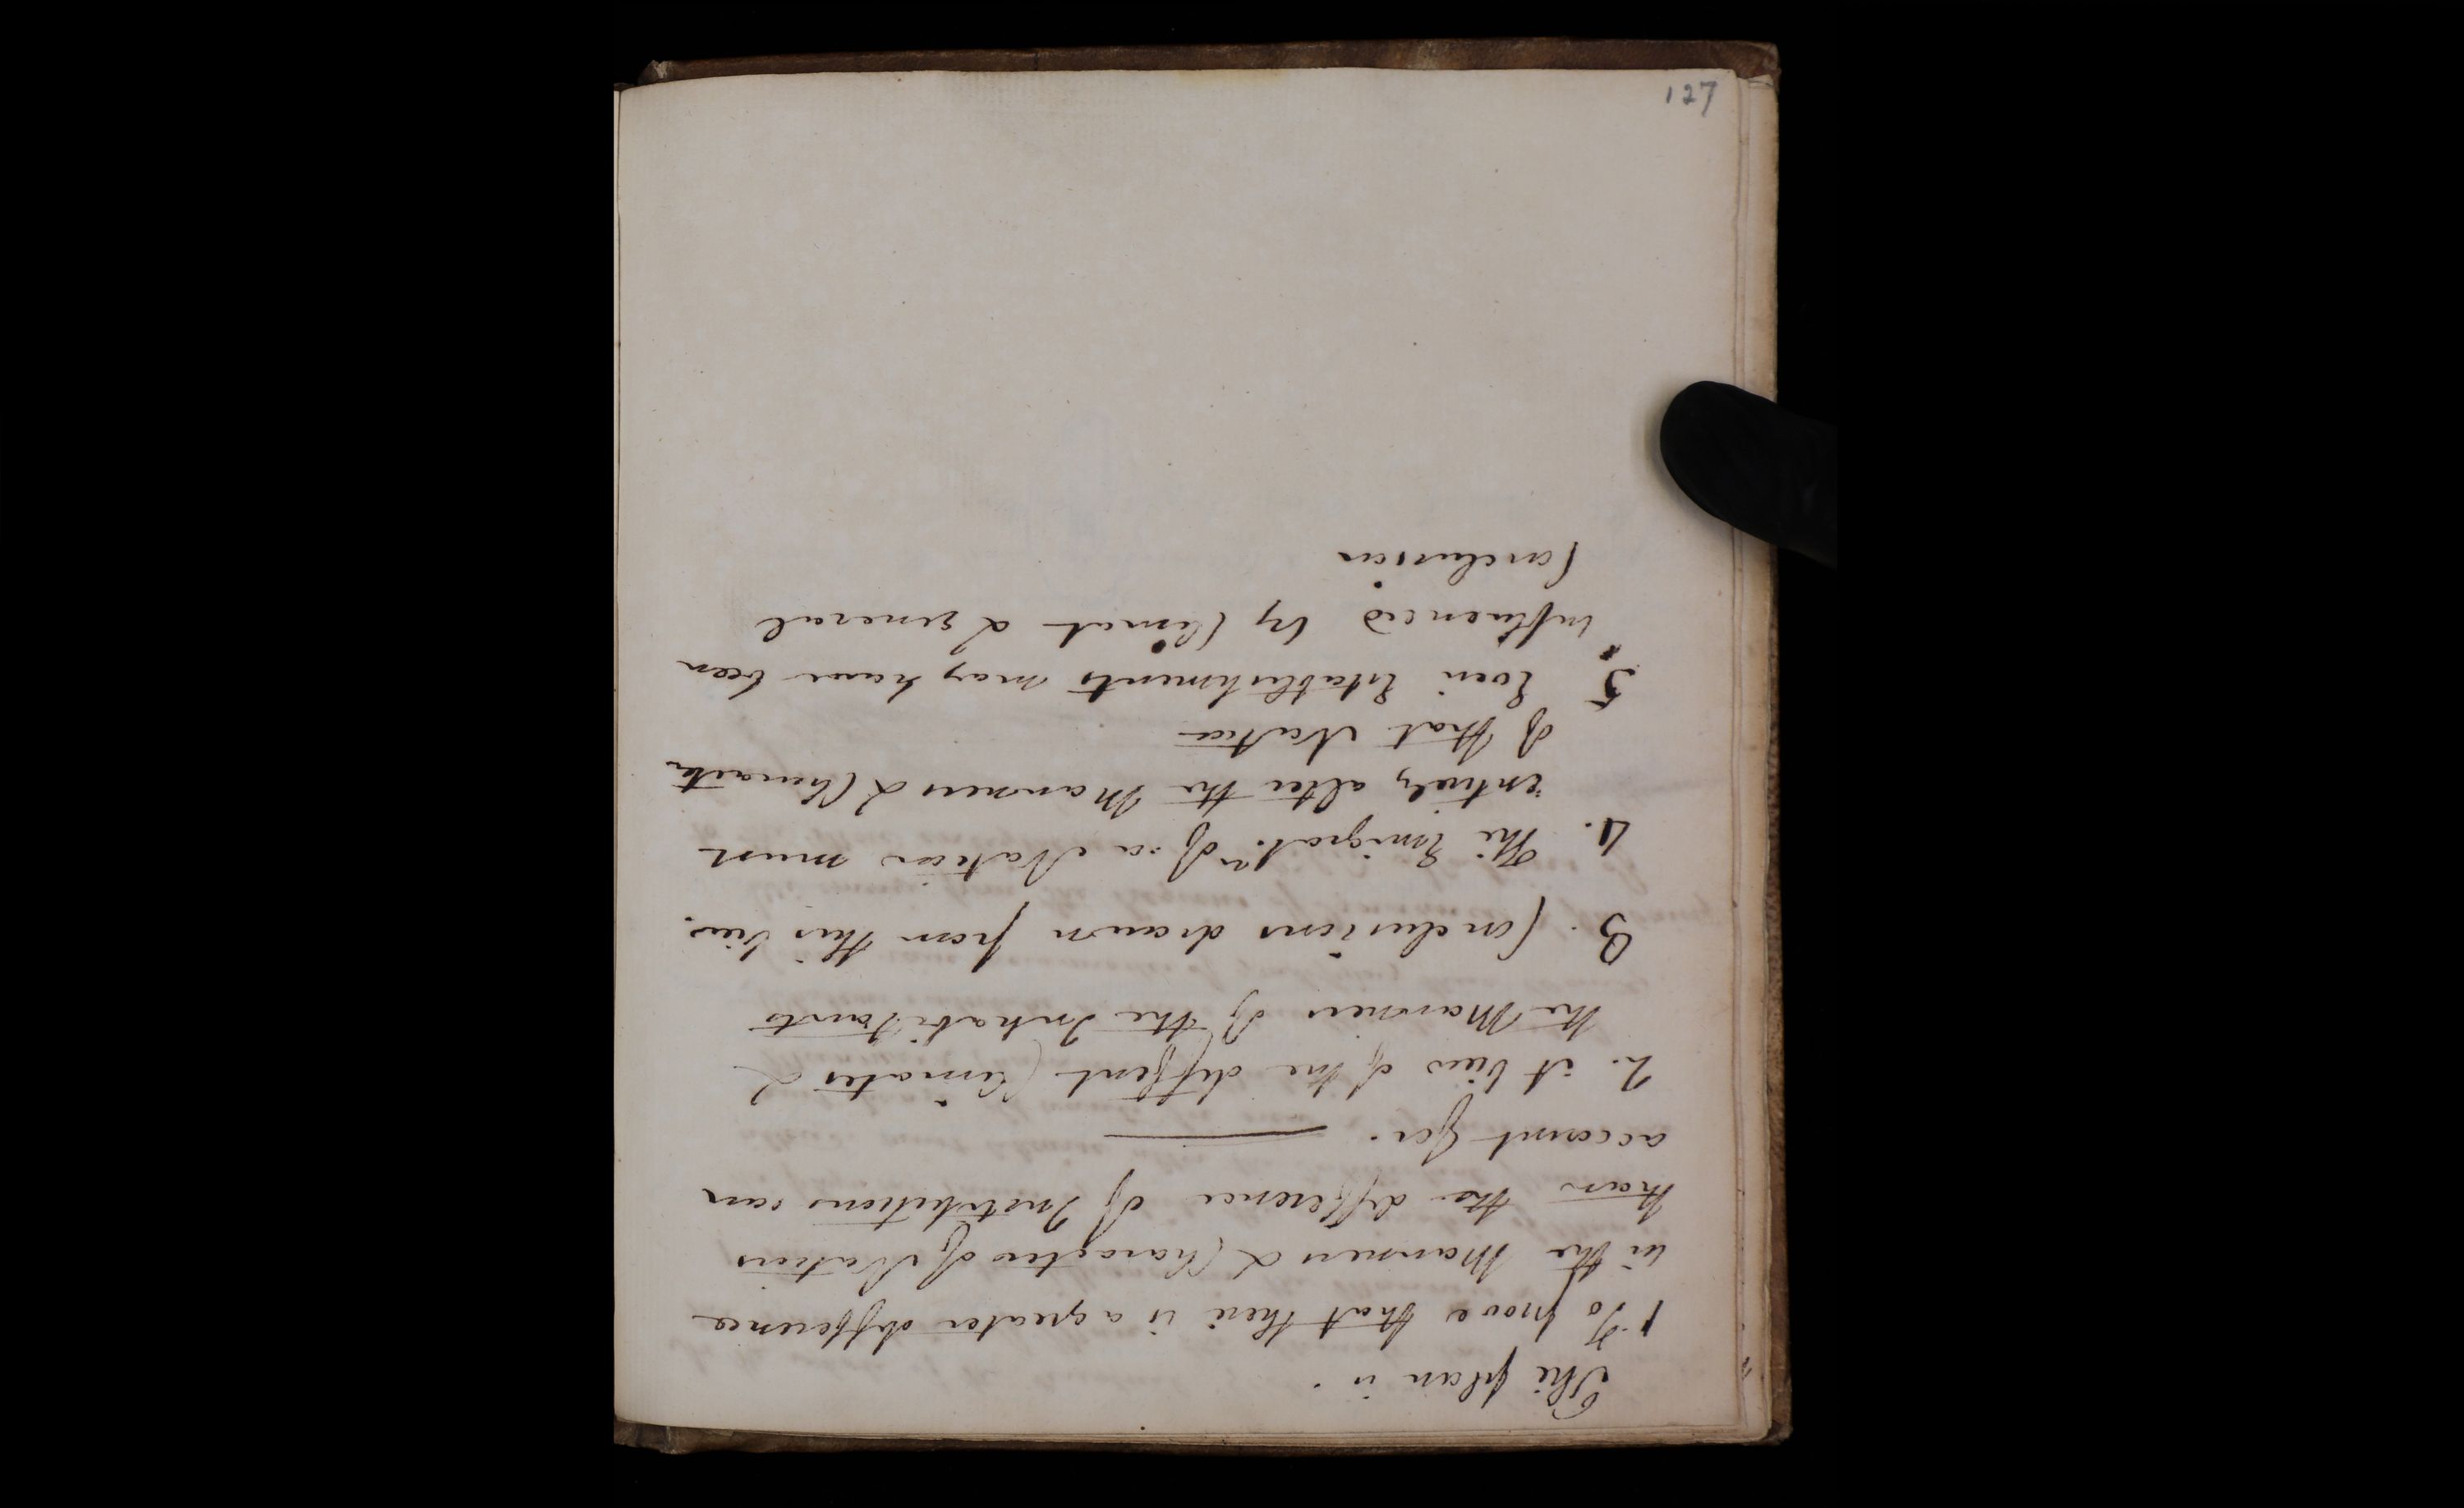 127
The plan is.
1 To prove that there is a greater difference
in the Manners & Character of Nations
than the difference of Institutions can
account for.
2. A View of the diffent Climates &
the Manners of the Inhabitants
3. Conclusions drawn from this View.
4. The Emigratn. of a Nation must
entirely alter the Manners & Character
of that Nation
5 Even Establishments may have been
influenced by Climat & general
Conclusion